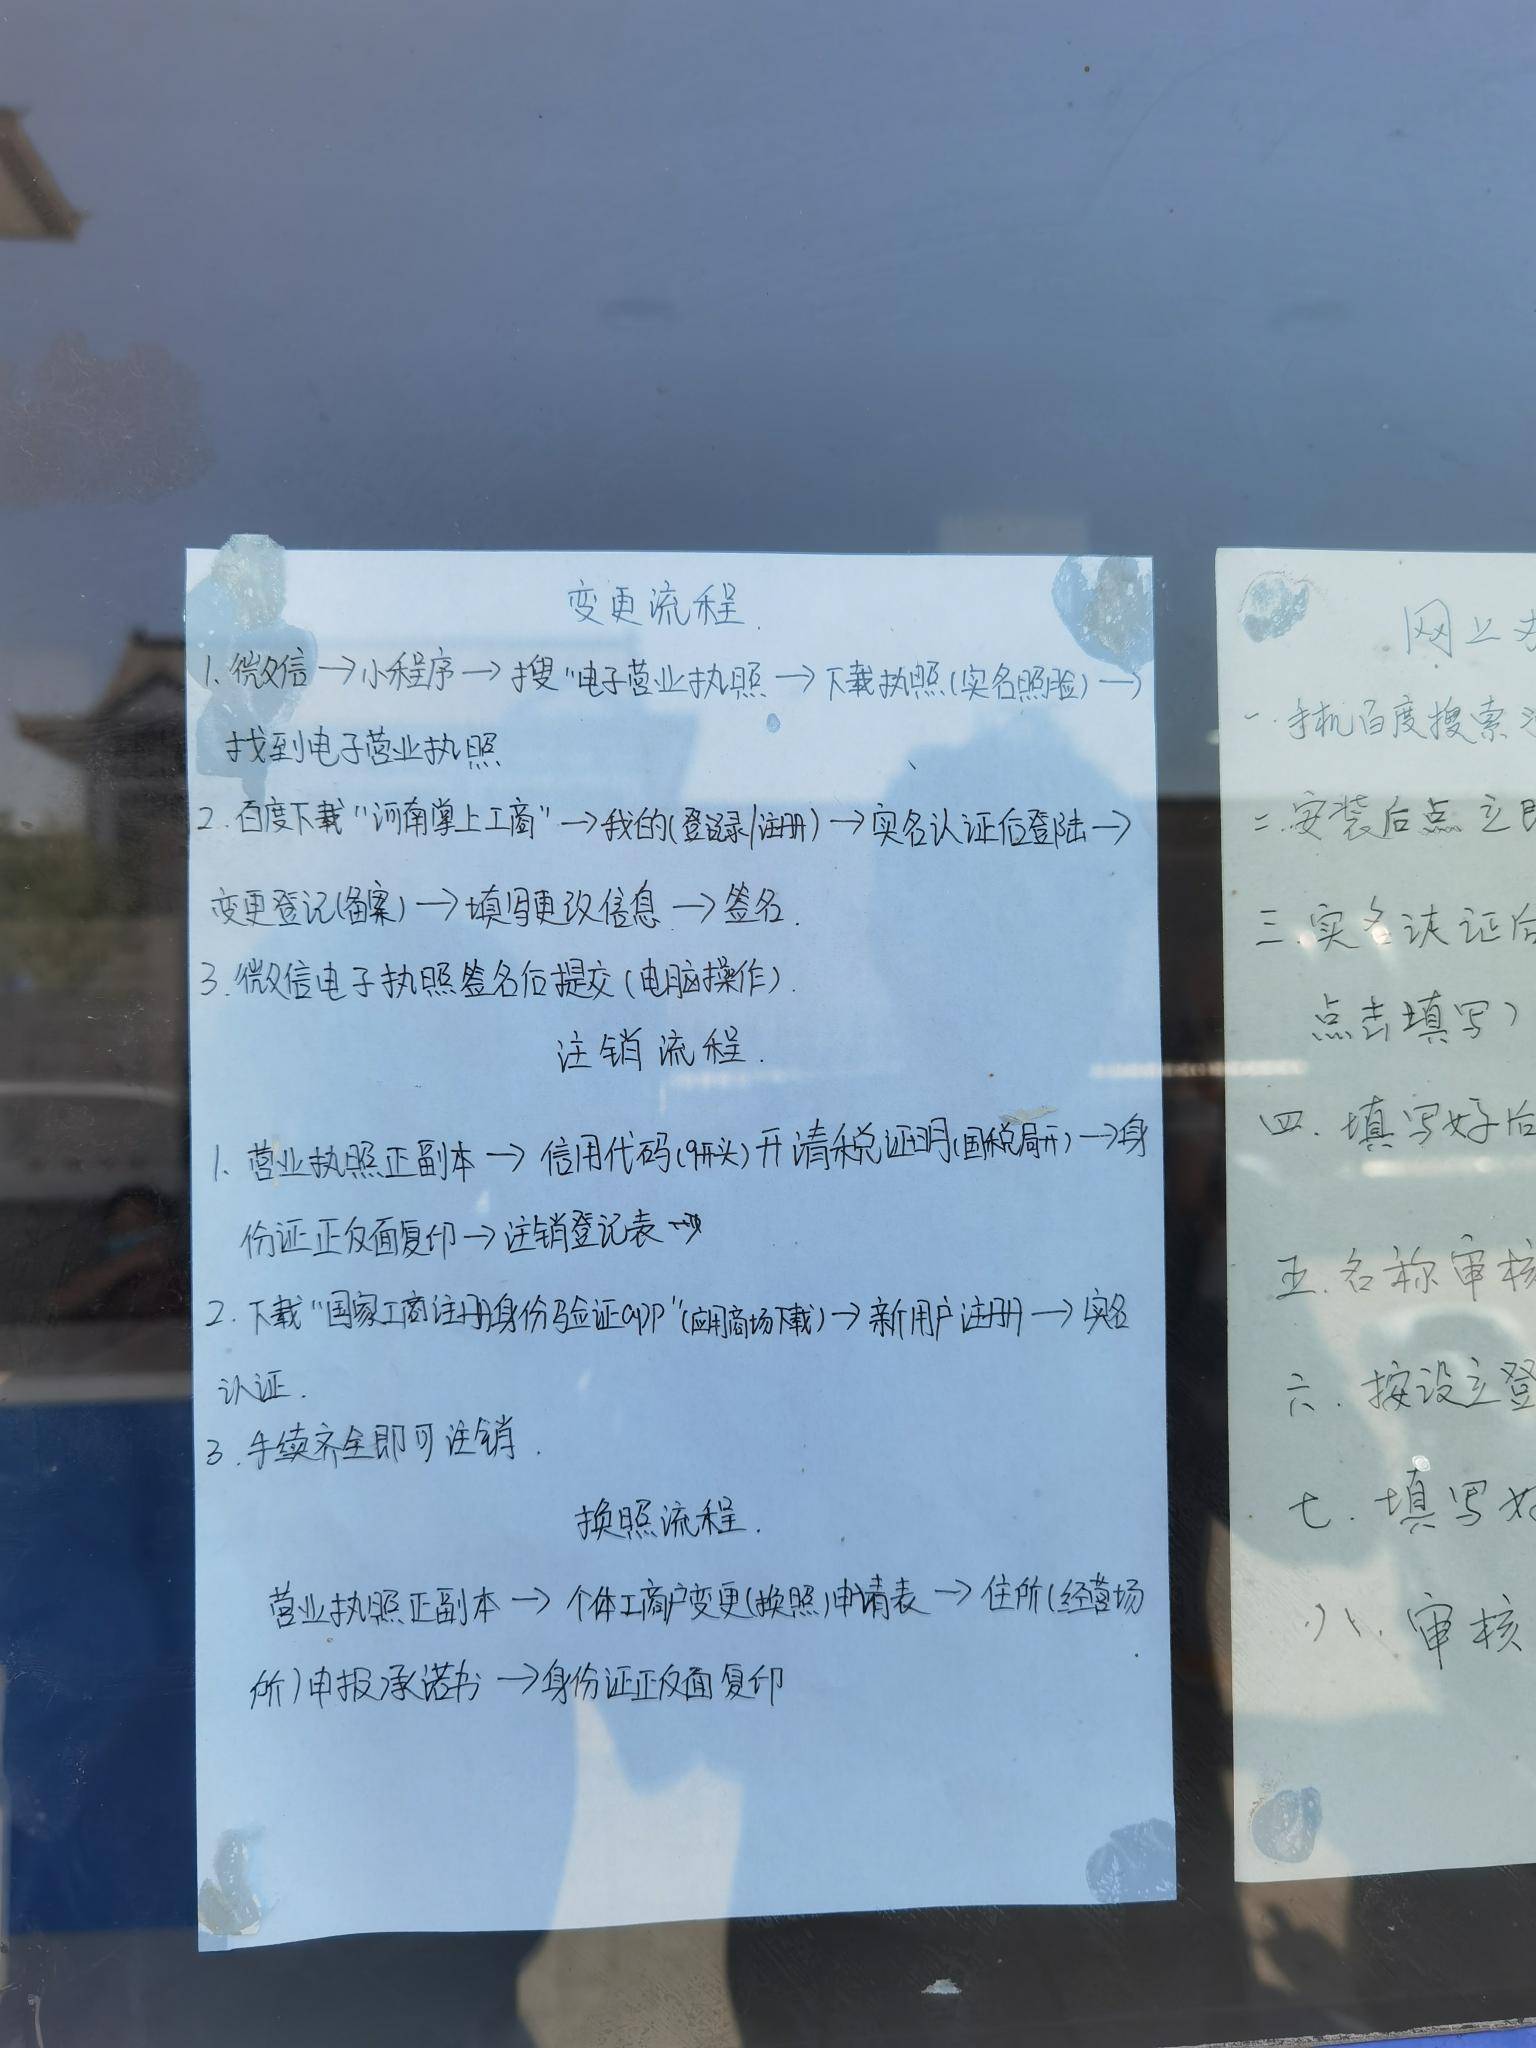 变更流程.
1.微信→小程序→搜"电子营业执照→下载执照(实名照脸)→
找到电子营业执照
2.百度下载"河南掌上工商"→我的(登录/注册)→实名认证后登陆→
变更登记(备案)→填写更改信息→签名.
3.微信电子执照签名后提交(电脑操作).
注销流程.
1.营业执照正副本→信用代码(9开头)开清税证明(国税局开)→身
份证正反面复印→注销登记表
2.下载"国家工商注册身份验证app"(应用商场下载)→新用户注册→实名
认证.
3.手续齐全即可注销.
换照流程.
营业执照正副本→个体工商户变更(换照)申请表→住所(经营场
所)申报承诺书→身份证正反面复印
网上
一.手机百度搜索
二.安装后点立即
三.实名认证后
点击填写)
四.填写好后
五.名称审核
六.按设立登
七.填写好
八.审核